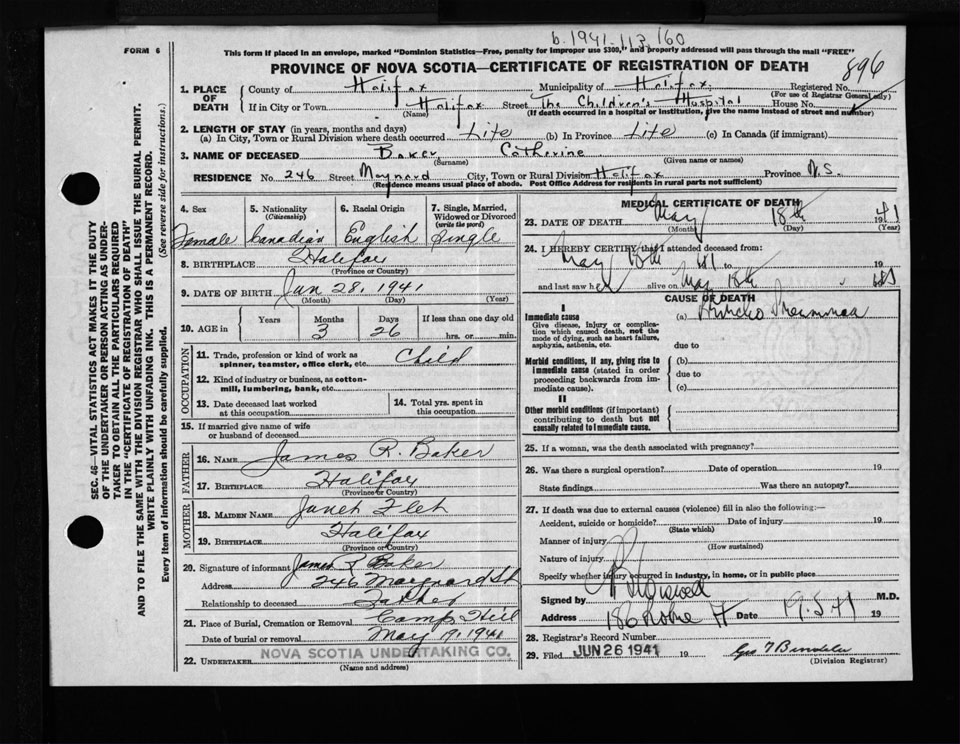 b. 1941-113 160
FORM 6
This form if placed in an envelope, marked "Dominion Statistics—Free, penalty for improper use $300," and properly addressed will pass through the mail "FREE"
PROVINCE OF NOVA SCOTIA—CERTIFICATE OF REGISTRATION OF DEATH
896
1. PLACE OF DEATH
County of Halifax Municipality of Halifax Registered No.
(For use of Registrar General only)
If in City or Town Halifax Street The Children's Hospital House No.
(Name) (If death occurred in a hospital or institution, give the name instead of street and number)
2. LENGTH OF STAY (in years, months and days)
(a) In City, Town or Rural Division where death occurred Life (b) In Province Life (c) In Canada (if immigrant)
3. NAME OF DECEASED Baker Catherine
(Surname) (Given name or names)
RESIDENCE No. 246 Street Maynard City, Town or Rural Division Halifax Province N.S.
(Residence means usual place of abode. Post Office Address for residents in rural parts not sufficient)
4. Sex
Female
5. Nationality
(Citizenship)
Canadian
6. Racial Origin
English
7. Single, Married, Widowed or Divorced
(write the word)
Single
8. BIRTHPLACE Halifax
(Province or Country)
9. DATE OF BIRTH Jan 28, 1941
(Month) (Day) (Year)
10. AGE in
Years Months Days If less than one day old
3 26 hrs. or min.
OCCUPATION
11. Trade, profession or kind of work as spinner, teamster, office clerk, etc. Child
12. Kind of industry or business, as cotton-mill, lumbering, bank, etc.
13. Date deceased last worked at this occupation
14. Total yrs. spent in this occupation
15. If married give name of wife or husband of deceased
FATHER
16. NAME James R. Baker
17. BIRTHPLACE Halifax
(Province or Country)
MOTHER
18. MAIDEN NAME Janet
19. BIRTHPLACE Halifax
(Province or Country)
20. Signature of informant James R Baker
Address 246 Maynard St
Relationship to deceased Father
21. Place of Burial, Cremation or Removal Camp Hill
Date of burial or removal May 19, 1941
22. UNDERTAKER NOVA SCOTIA UNDERTAKING CO.
(Name and address)
MEDICAL CERTIFICATE OF DEATH
23. DATE OF DEATH May 18th 1941
(Month) (Day) (Year)
24. I HEREBY CERTIFY that I attended deceased from:
May 19
and last saw her alive on May 18th 19
CAUSE OF DEATH
I
Immediate cause
Give disease, injury or complication which caused death, not the mode of dying, such as heart failure, asphyxia, asthenia, etc.
(a) Broncho Pneumonia
due to
Morbid conditions, if any, giving rise to immediate cause (stated in order proceeding backwards from immediate cause).
(b)
due to
(c)
II
Other morbid conditions (if important) contributing to death but not causally related to immediate cause.
25. If a woman, was the death associated with pregnancy?
26. Was there a surgical operation? Date of operation 19
State findings Was there an autopsy?
27. If death was due to external causes (violence) fill in also the following:—
Accident, suicide or homicide? Date of injury 19
(State which)
Manner of injury
(How sustained)
Nature of injury
Specify whether injury occurred in industry, in home, or in public place
Signed by M.D.
Address 186 Date 19.5.41 19
28. Registrar's Record Number
29. Filed JUN 26 1941 19
(Division Registrar)
SEC. 46—VITAL STATISTICS ACT MAKES IT THE DUTY
OF THE UNDERTAKER OR PERSON ACTING AS UNDER-
TAKER TO OBTAIN ALL THE PARTICULARS REQUIRED
IN THE "CERTIFICATE OF REGISTRATION OF DEATH"
AND TO FILE THE SAME WITH THE DIVISION REGISTRAR WHO SHALL ISSUE THE BURIAL PERMIT.
WRITE PLAINLY WITH UNFADING INK. THIS IS A PERMANENT RECORD.
Every item of information should be carefully supplied. (See reverse side for instructions.)